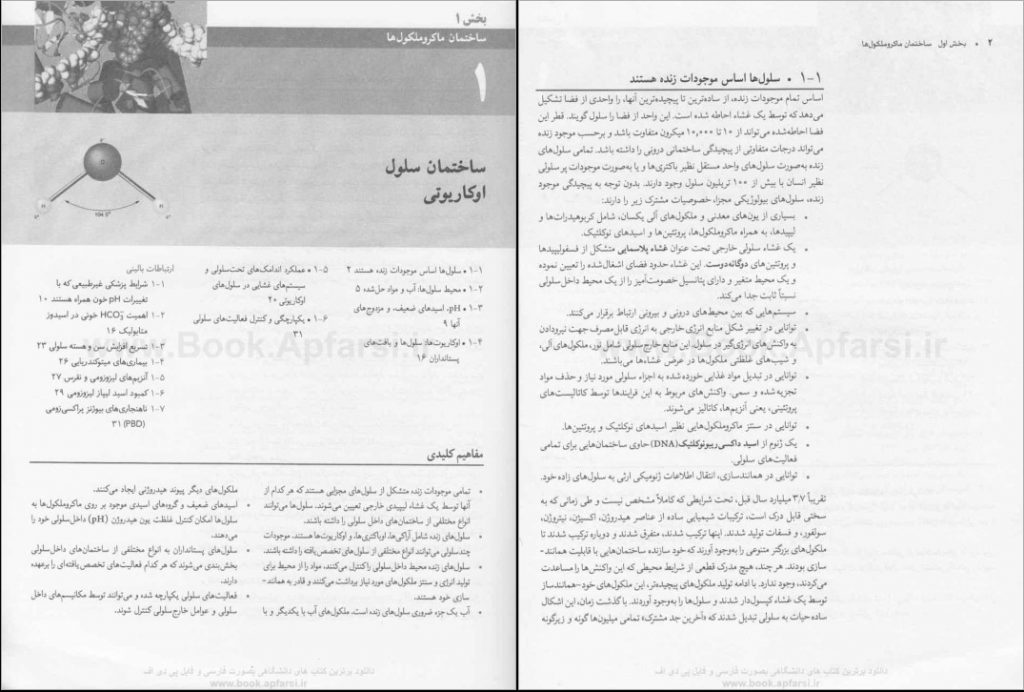 بخش ۱
ساختمان ماکروملکول‌ها
۱
ساختمان سلول
اوکاریوتی
104.5°
H
H
O
۱-۱ • سلول‌ها اساس موجودات زنده هستند ۲
۱-۲ • محیط سلول‌ها: آب و مواد حل‌شده ۵
۱-۳ • pH، اسیدهای ضعیف، و مزدوج‌های
آنها ۹
۱-۴ • اوکاریوت‌ها: سلول‌ها و بافت‌های
پستانداران ۱۶
۱-۵ • عملکرد اندامک‌های تحت‌سلولی و
سیستم‌های غشایی در سلول‌های
اوکاریوتی ۲۰
۱-۶ • یکپارچگی و کنترل فعالیت‌های سلولی
۳۱
ارتباطات بالینی
۱-۱ شرایط پزشکی غیرطبیعی که با
تغییرات pH خون همراه هستند ۱۰
۱-۲ اهمیت HCO₃⁻ خونی در اسیدوز
متابولیک ۱۶
۱-۳ تسریع افزایش سن و هسته سلولی ۲۳
۱-۴ بیماری‌های میتوکندریایی ۲۶
۱-۵ آنزیم‌های لیزوزومی و نقرس ۲۷
۱-۶ کمبود اسید لیپاز لیزوزومی ۲۹
۱-۷ ناهنجاری‌های بیوژنز پراکسی‌زومی
(PBD) ۳۱
www.Book.Apfarsi.ir
مفاهیم کلیدی
• تمامی موجودات زنده متشکل از سلول‌های مجزایی هستند که هر کدام از
آنها توسط یک غشاء لیپیدی خارجی تعیین می‌شوند. سلول‌ها می‌توانند
انواع مختلفی از ساختمان‌های داخل سلولی را داشته باشند.
• سلول‌های زنده شامل آراکی‌ها، اوباکتری‌ها، و اوکاریوت‌ها هستند. موجودات
چندسلولی می‌توانند انواع مختلفی از سلول‌های تخصص‌یافته را داشته باشند.
• سلول‌های زنده محیط داخل‌سلولی را کنترل می‌کنند، مواد را از محیط برای
تولید انرژی و سنتز ملکول‌های مورد نیاز برداشت می‌کنند و قادر به همانند-
سازی خود هستند.
• آب یک جزء ضروری سلول‌های زنده است. ملکول‌های آب با یکدیگر و با
ملکول‌های دیگر پیوند هیدروژنی ایجاد می‌کنند.
• اسیدهای ضعیف و گروه‌های اسیدی موجود بر روی ماکروملکول‌ها به
سلول‌ها امکان کنترل غلظت یون هیدروژن (pH) داخل‌سلولی خود را
می‌دهند.
• سلول‌های پستانداران به انواع مختلفی از ساختمان‌های داخل‌سلولی
بخش‌بندی می‌شوند که هر کدام فعالیت‌های تخصص یافته‌ای را برعهده
دارند.
• فعالیت‌های سلولی یکپارچه شده و می‌توانند توسط مکانیسم‌های داخل
سلولی و عوامل خارج‌سلولی کنترل شوند.
دانلود برترین کتاب های دانشگاهی بصورت فارسی و فایل پی دی اف
www.book.apfarsi.ir
۲ • بخش اول ساختمان ماکروملکول‌ها
۱-۱ • سلول‌ها اساس موجودات زنده هستند
اساس تمام موجودات زنده، از ساده‌ترین تا پیچیده‌ترین آنها، را واحدی از فضا تشکیل
می‌دهد که توسط یک غشاء احاطه شده است. این واحد از فضا را سلول گویند. قطر این
فضا احاطه‌شده می‌تواند از ۱۰ تا ۱۰,۰۰۰ میکرون متفاوت باشد و برحسب موجود زنده
می‌تواند درجات متفاوتی از پیچیدگی ساختمانی درونی را داشته باشد. تمامی سلول‌های
زنده به‌صورت سلول‌های واحد مستقل نظیر باکتری‌ها و یا به‌صورت موجودات پر سلولی
نظیر انسان با بیش از ۱۰۰ تریلیون سلول وجود دارند. بدون توجه به پیچیدگی موجود
زنده، سلول‌های بیولوژیکی مجزا، خصوصیات مشترک زیر را دارند:
• بسیاری از یون‌های معدنی و ملکول‌های آلی یکسان، شامل کربوهیدرات‌ها و
لیپیدها، به همراه ماکروملکول‌ها، پروتئین‌ها و اسیدهای نوکلئیک.
• یک غشاء سلولی خارجی تحت عنوان غشاء پلاسمایی متشکل از فسفولیپیدها
و پروتئین‌های دوگانه‌دوست. این غشاء حدود فضای اشغال‌شده را تعیین نموده
و یک محیط متغیر و دارای پتانسیل خصومت‌آمیز را از یک محیط داخل سلولی
نسبتاً ثابت جدا می‌کند.
• سیستم‌هایی که بین محیط‌های درونی و بیرونی ارتباط برقرار می‌کنند.
• توانایی در تغییر شکل منابع انرژی خارجی به انرژی قابل مصرف جهت نیرودادن
به واکنش‌های انرژی‌گیر در سلول. این منابع خارج سلولی شامل نور، ملکول‌های آلی،
و شیب‌های غلظتی ملکول‌ها در عرض غشاءها می‌باشند.
• توانایی در تبدیل مواد غذایی خورده‌شده به اجزاء سلولی مورد نیاز و حذف مواد
تجزیه‌شده و سمی. واکنش‌های مربوط به این فرایندها توسط کاتالیست‌های
پروتئینی، یعنی آنزیم‌ها، کاتالیز می‌شوند.
• توانایی در سنتز ماکروملکول‌هایی نظیر اسیدهای نوکلئیک و پروتئین‌ها.
• یک ژنوم از اسید داکسی‌ریبونوکلئیک (DNA) حاوی ساختمان‌هایی برای تمامی
فعالیت‌های سلولی.
• توانایی در همانندسازی، انتقال اطلاعات ژنومیکی ارثی به سلول‌های زاده خود.
تقریباً ۳/۷ میلیارد سال قبل، تحت شرایطی که کاملاً مشخص نیست و طی زمانی که به
سختی قابل درک است، ترکیبات شیمیایی ساده از عناصر هیدروژن، اکسیژن، نیتروژن،
سولفور، و فسفات تولید شدند. اینها ترکیب شدند، متفرق شدند و دوباره ترکیب شدند تا
ملکول‌های بزرگتر متنوعی را به‌وجود آورند که خود سازنده ساختمان‌هایی با قابلیت همانند-
سازی بودند. هر چند، هیچ مدرک قطعی از شرایط محیطی که این واکنش‌ها را مساعدت
می‌کردند، وجود ندارد. با ادامه تولید ملکول‌های پیچیده‌تر، این ملکول‌های خود-همانندساز
توسط یک غشاء کپسول‌دار شدند و سلول‌ها را به‌وجود آوردند. با گذشت زمان، این اشکال
ساده حیات به سلولی تبدیل شدند که «آخرین جد مشترک» تمامی میلیون‌ها گونه و زیرگونه
www.Book.Apfarsi.ir
دانلود برترین کتاب های دانشگاهی بصورت فارسی و فایل پی دی اف
www.book.apfarsi.ir